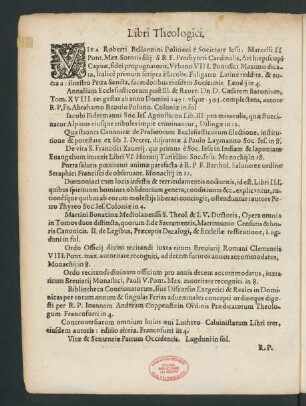 Libri Theologici.
Vita Roberti Bellarmini Politiani è Societate Iesu, Marcelli II
Pont. Max. Sororis filij S R E. Presbyteri Cardinalis, Archiepiscopi
Capuæ, fidei propugnatoris, Urbano VIII. Pontifici Maximo dica-
ta, Italicè primùm scripta à Iacobo Fuligatto Latinè reddita, & au-
cta à Silvestro Petra Sancta, sacerdotibus eiusdem Societatis Leodij in 4.
Annalium Ecclesiasticorum post Ill. & Rever. Dn. D. Cæsarem Baronium,
Tom. XVIII. res gestas ab anno Domini 1471. usque 503. complectens, autore
R.P. Fr. Abrahamo Bzovio Polono. Coloniæ in fol.
Iacobi Bidermanni Soc Iesu
Alpinus eiusque tribules impiè criminantur, Dilingæ in 12.
Quæstiones Canonicæ de Prælatorum Ecclesiasticorum Electione, institu-
tione & potestate ex lib. I. Decret. disputatæ à Paulo Laymanno Soc. Iesu in 8.
De vita S. Francisci Xaverij, qui primus è Soc. Iesu in Indiam & Iaponiam
Evangelium invexit Libri VI. Horatij Tursellini Soc. Iesu. Monachij in 18.
Porta salutis pœnitenti animæ præfecta à R. P. F. Barthol. Salutio ex ordine
Seraphici Francisci de observant. Monachij in 12.
Dæmoniaci cum locis infestis & terriculamentis nocturnis, id est, Libri III.
quibus spirituum homines obsidentium genera, conditiones, & ad
quibus modis ab eorum molestijs liberari contingit, ostenduntur autore Pe-
tro Thyreo Soc. Iesu Coloniæ in 4.
Martini Bonacinæ Mediolanensis S. Theol. & I. V. Doctoris, Opera omnia
in Tomos duos distincta, quorum I. de Sacramentis, Matrimonio Censuris & ho-
ris Canonicis. II. de Legibus, Præceptis Decalogi, & Ecclesiæ restitutione, Lugdu-
ni in fol.
Ordo Officij divini recitandi iuxta ritum Breviarij Romani Clementis
VIII. Pont. max. autoritate recogniti, ad decem futuros annos accommodatus,
Monachij in 8.
Ordo recitandi divinum officium pro annis decem accommodatus, iuxta
ritum Breviarij Monalici, Pauli V. Pont. Max. autoritate recogniti. in 8.
Bibliotheca Concionatorum, sive Discursus Exegetici & Reales in Domini-
cas per totum annum & singulas Ferias adventuales concepti ordineque digesti
per R. P. Ioannem Andream Coppenstein Ordinis Prædicatorum Theolo-
gum Francofurti in 4.
Controversiarum omnium huius ævi Luthero Calvinistarum Libri tres,
eiusdem autoris: editio altera. Francofurti in 4.
Vitæ & Sententiæ Patrum Occidentis. Lugduni in fol.
R. P.